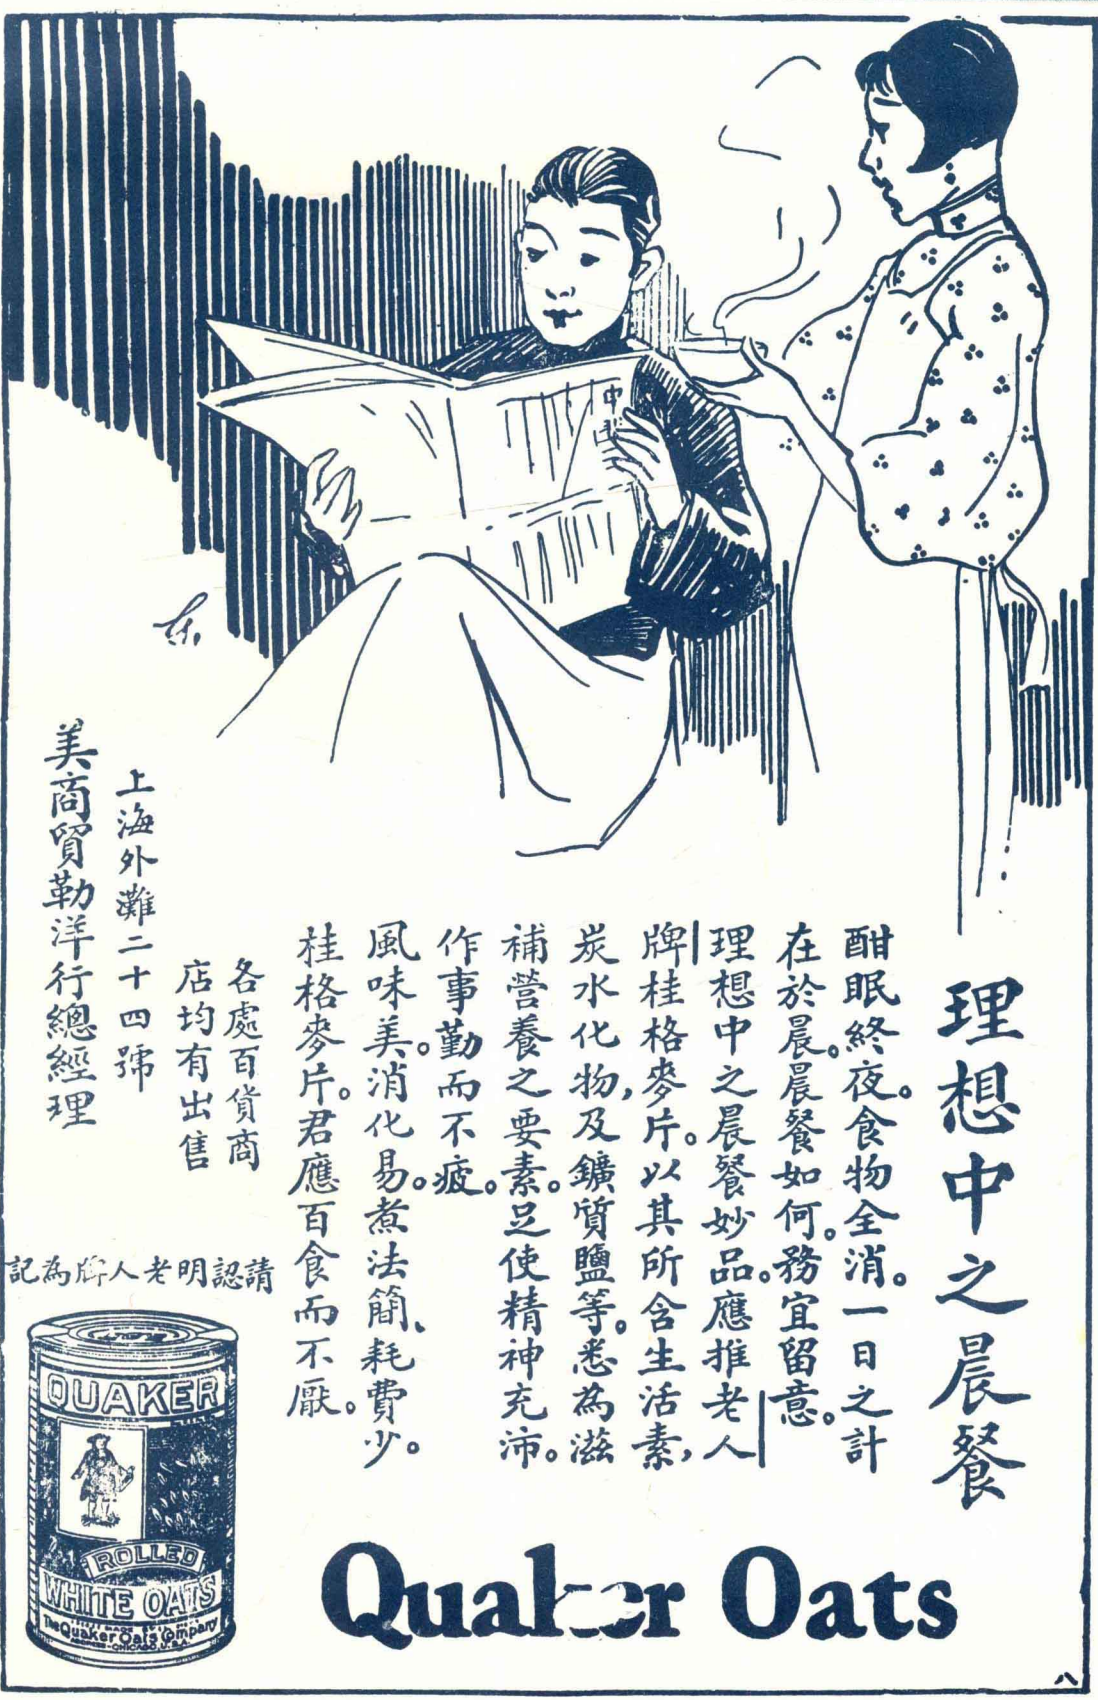 理想中之晨餐
酣眠終夜。食物全消。一日之計
在於晨。晨餐如何。務宜留意。
理想中之晨餐妙品。應推老人
牌桂格麥片。以其所含生活素，
炭水化物，及鑛質鹽等。悉為滋
補營養之要素。足使精神充沛。
作事勤而不疲。
風味美。消化易。煮法簡、耗費少。
桂格麥片。君應百食而不厭。
各處百貨商
店均有出售
上海外灘二十四號
美商貿勒洋行總經理
請認明老人牌為記
QUAKER
ROLLED
WHITE OATS
The Quaker Oats Company
Quaker Oats
八